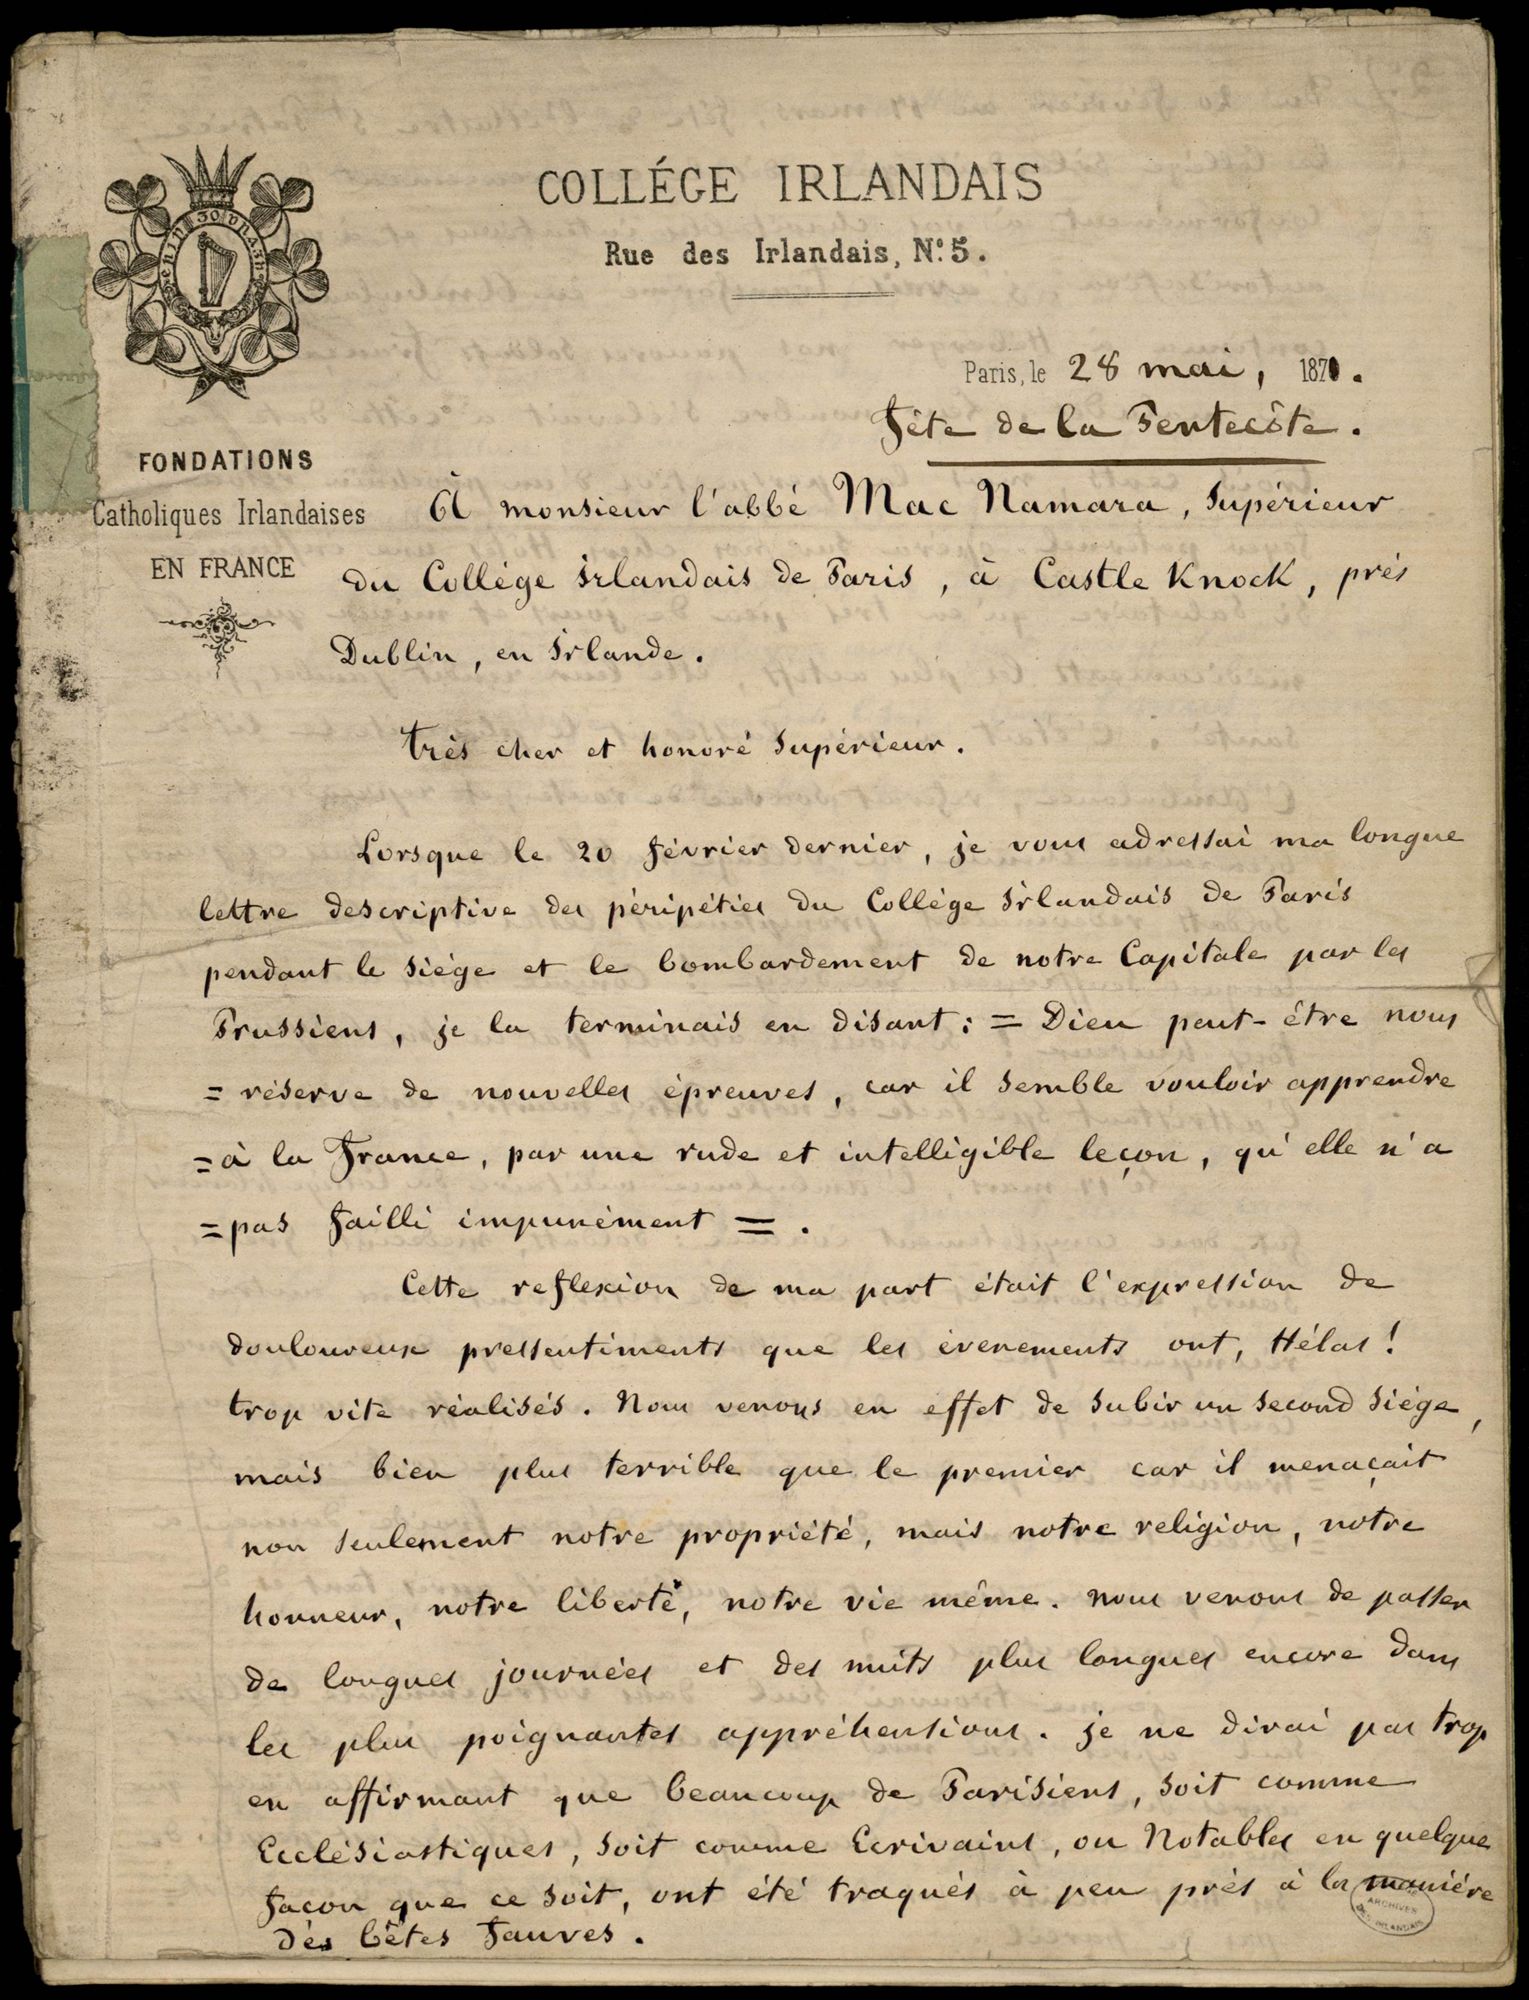 COLLÉGE IRLANDAIS
Rue des Irlandais, N.º 5.
Paris, le 28 mai, 1871.
fête de la Pentecôte.
FONDATIONS
Catholiques Irlandaises
EN FRANCE
À monsieur l'abbé Mac Namara, Supérieur
du Collége Irlandais de Paris, à Castle Knock, prés
Dublin, en Irlande.
très cher et honoré Supérieur.
Lorsque le 20 février dernier, je vous adressai ma longue
lettre descriptive des péripéties du Collége Irlandais de Paris
pendant le siége et le bombardement de notre Capitale par les
Prussiens, je la terminais en disant : = Dieu peut-être nous
= réserve de nouvelles épreuves, car il semble vouloir apprendre
= à la France, par une rude et intelligible leçon, qu'elle n'a
= pas failli impunément = .
Cette reflexion de ma part était l'expression de
douloureux pressentiments que les évenements ont, Hélas !
trop vite réalisés. Nous venons en effet de subir un second siége,
mais bien plus terrible que le premier car il menaçait
non seulement notre propriété, mais notre religion, notre
honneur, notre liberté, notre vie même. nous venons de passer
de longues journées et des nuits plus longues encore dans
les plus poignantes appréhensions. je ne dirai pas trop
en affirmant que beaucoup de Parisiens, soit comme
Ecclésiastiques, soit comme Ecrivains, ou Notables en quelque
façon que ce soit, ont été traqués à peu prés à la maniére
des bêtes fauves.
ARCHIVES
DES IRLANDAIS